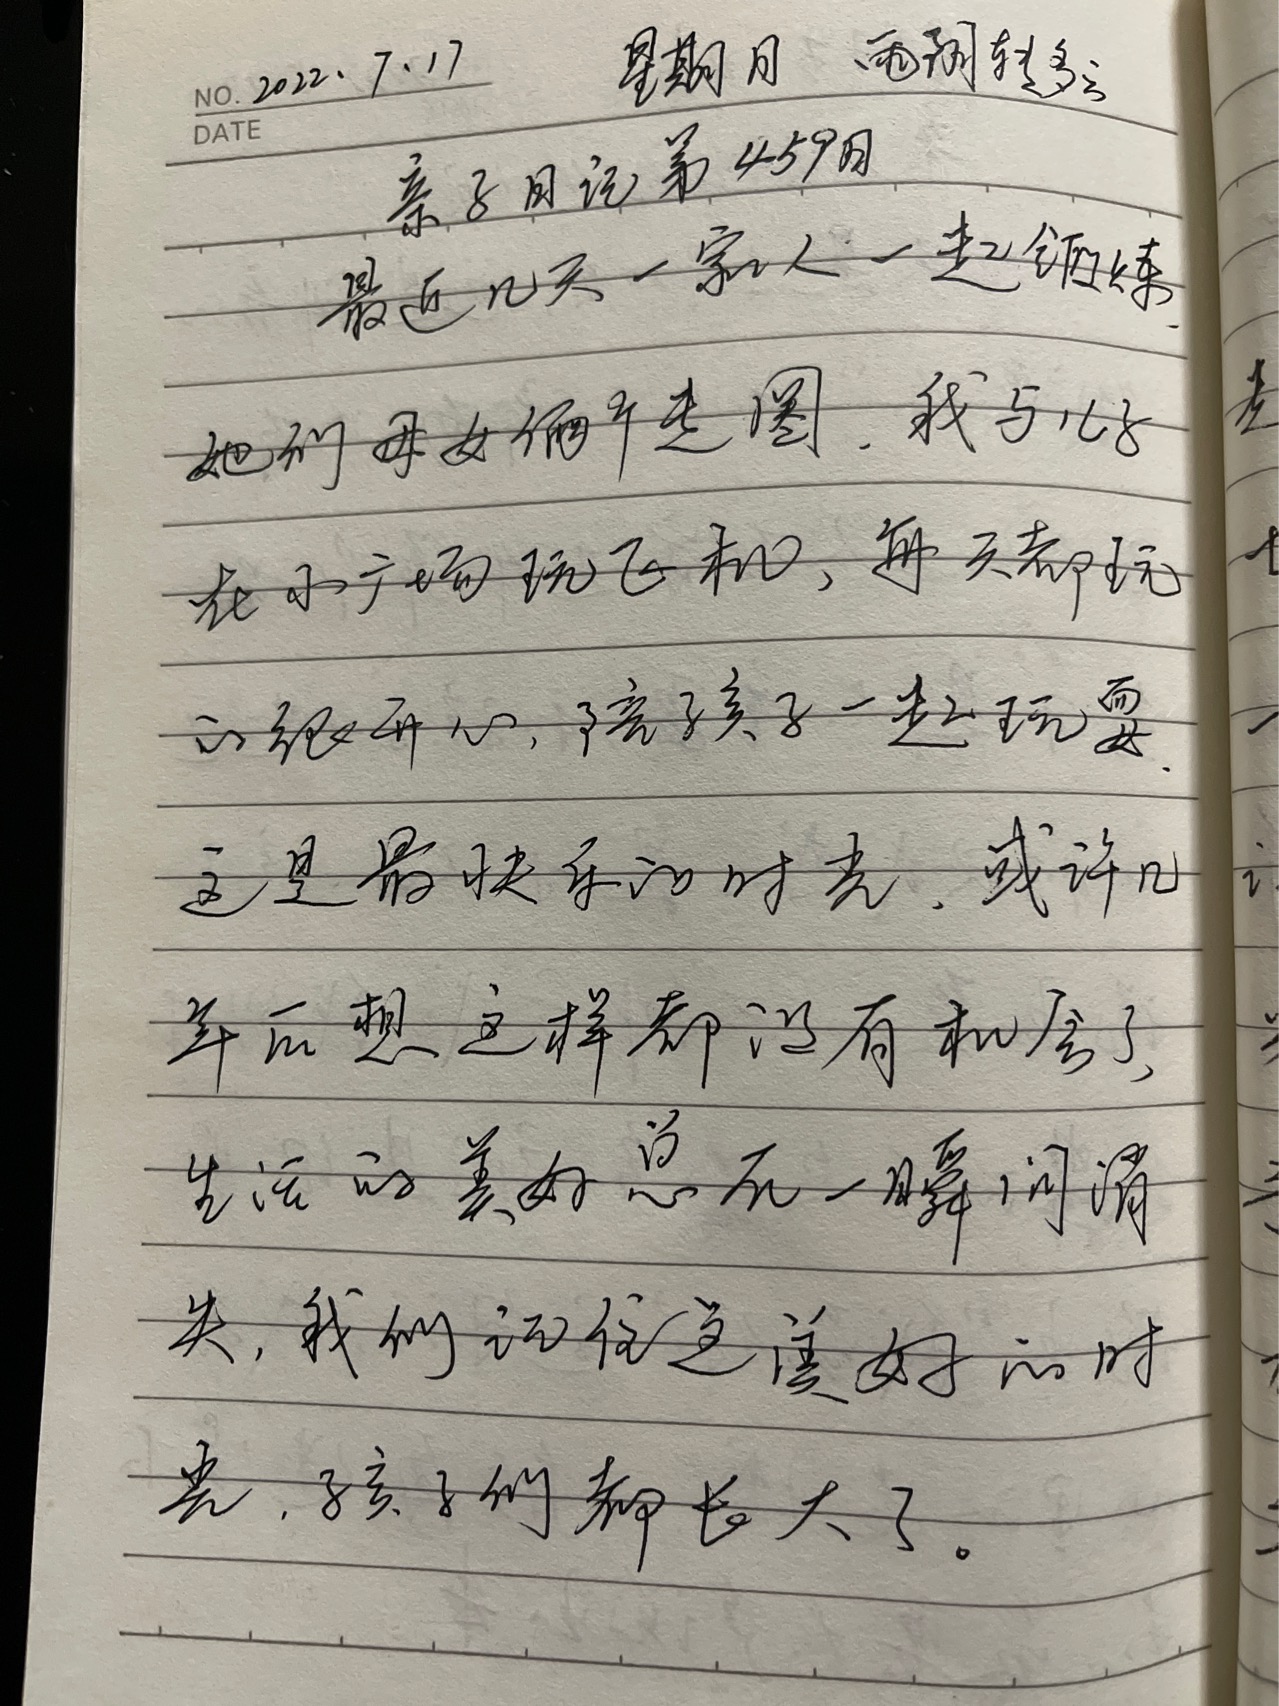 NO. 2022.7.17 星期日 雨阴转多云
DATE
亲子日记第459日
最近几天一家人一起锻炼.
她们母女俩个走圈.我与儿子
在小广场玩飞机,每天都玩
的很开心,陪孩子一起玩耍.
这是最快乐的时光.或许几
年后想这样都没有机会了,
生活的美好总在一瞬间消
失,我们记住这美好的时
光.孩子们都长大了。